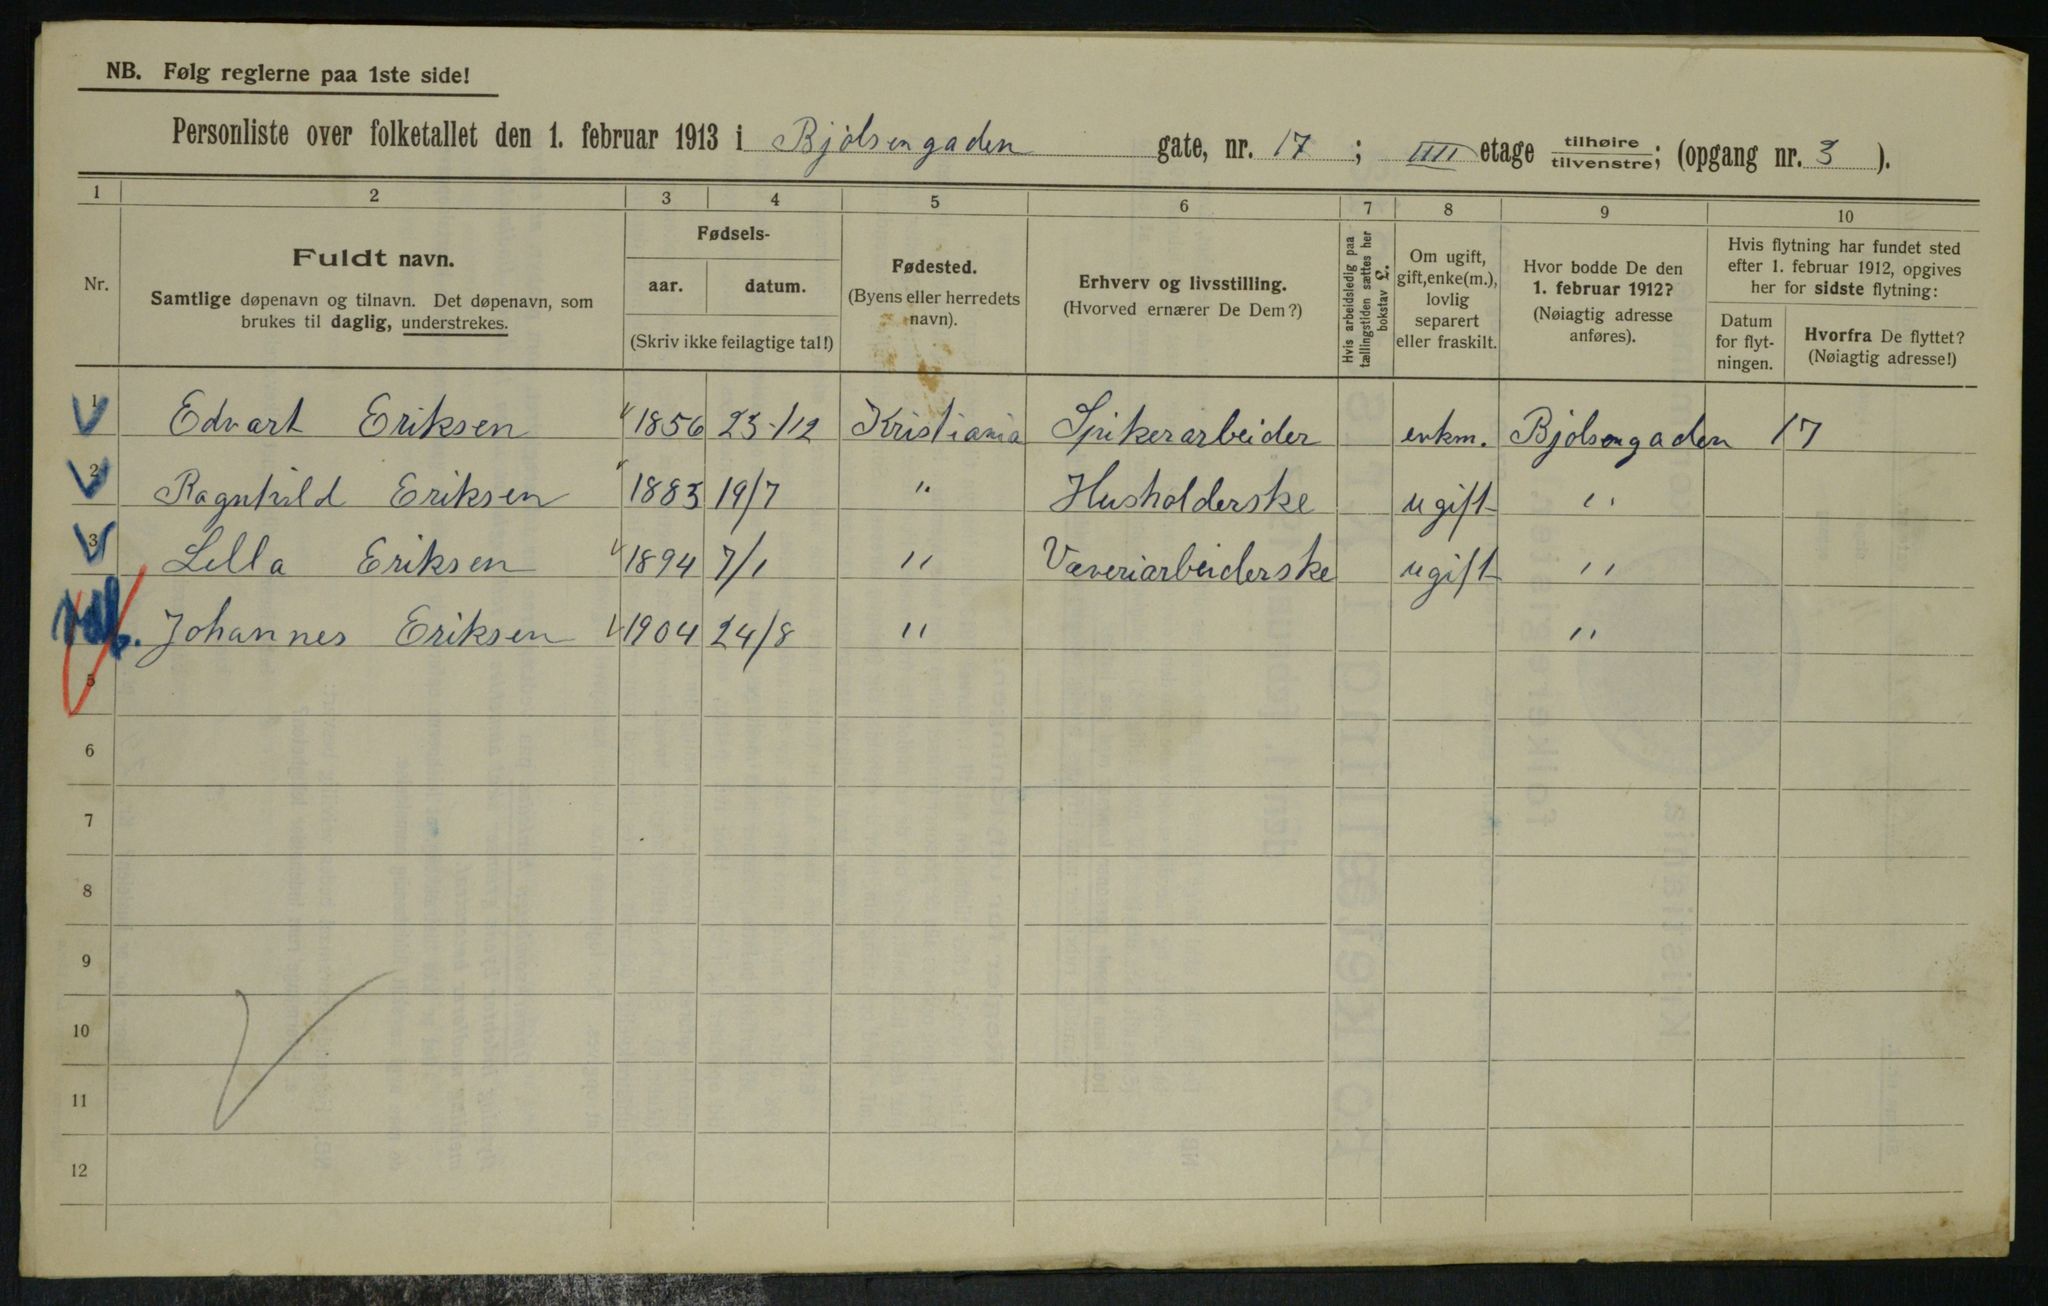 NB. Følg reglerne paa 1ste side!
Personliste over folketallet den 1. februar 1913 i Bjølsengaden gate, nr. 17 ; IIII etage tilhøire tilvenstre; (opgang nr. 3 ).
1 2 3 4 5 6 7 8 9 10
Nr.
Fuldt navn.
Samtlige døpenavn og tilnavn. Det døpenavn, som
brukes til daglig, understrekes.
Fødsels-
aar. datum.
(Skriv ikke feilagtige tal!)
Fødested.
(Byens eller herredets
navn).
Erhverv og livsstilling.
(Hvorved ernærer De Dem?)
Hvis arbeidsledig paa
tællingstiden sættes her
bokstav £.
Om ugift,
gift, enke(m.),
lovlig
separert
eller fraskilt.
Hvor bodde De den
1. februar 1912?
(Nøiagtig adresse
anføres).
Hvis flytning har fundet sted
efter 1. februar 1912, opgives
her for sidste flytning:
Datum
for flyt-
ningen.
Hvorfra De flyttet?
(Nøiagtig adresse!)
1 Edvart Eriksen 1856 23/12 Kristiania Spikerarbeider enkm. Bjølsengaden 17
2 Ragnhild Eriksen 1883 19/7 " Husholderske ugift "
3 Lella Eriksen 1894 7/1 " Væveriarbeiderske ugift "
Johannes Eriksen 1904 24/8 " "
5
6
7
8
9
10
11
12